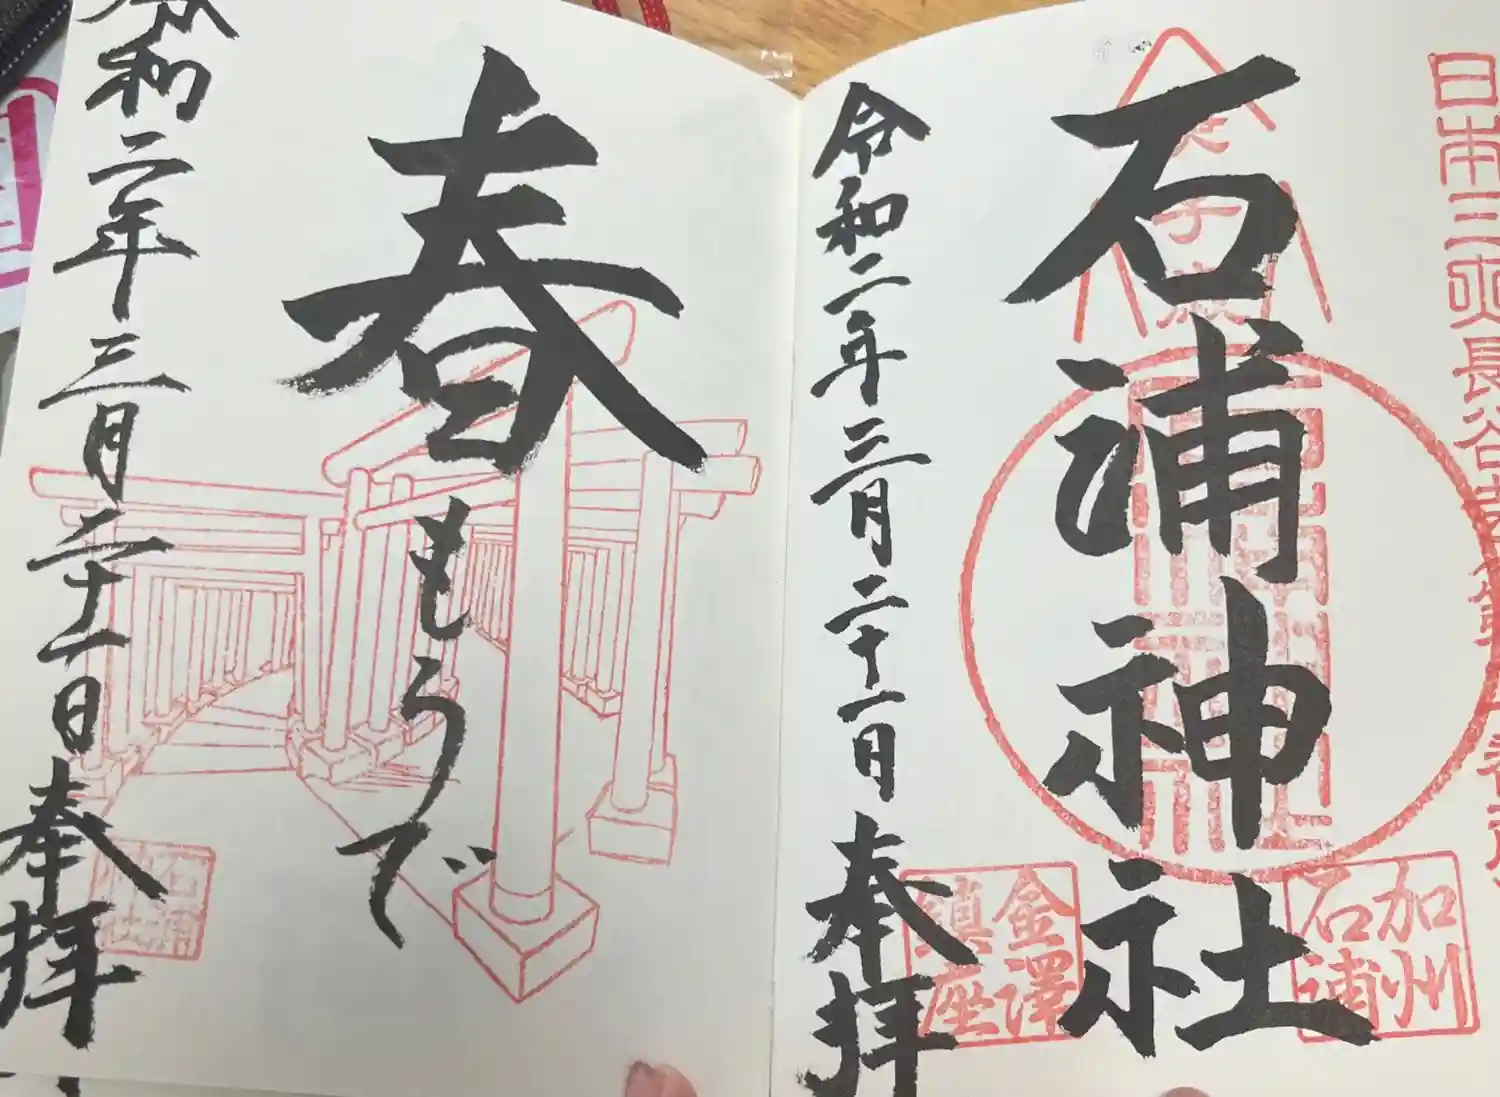 日本三
長谷
石浦神社
加州
石浦
金澤
鎮座
令和二年三月二十一日
奉拝
春もうで
令和二年三月二十一日
奉拝
石浦
神社